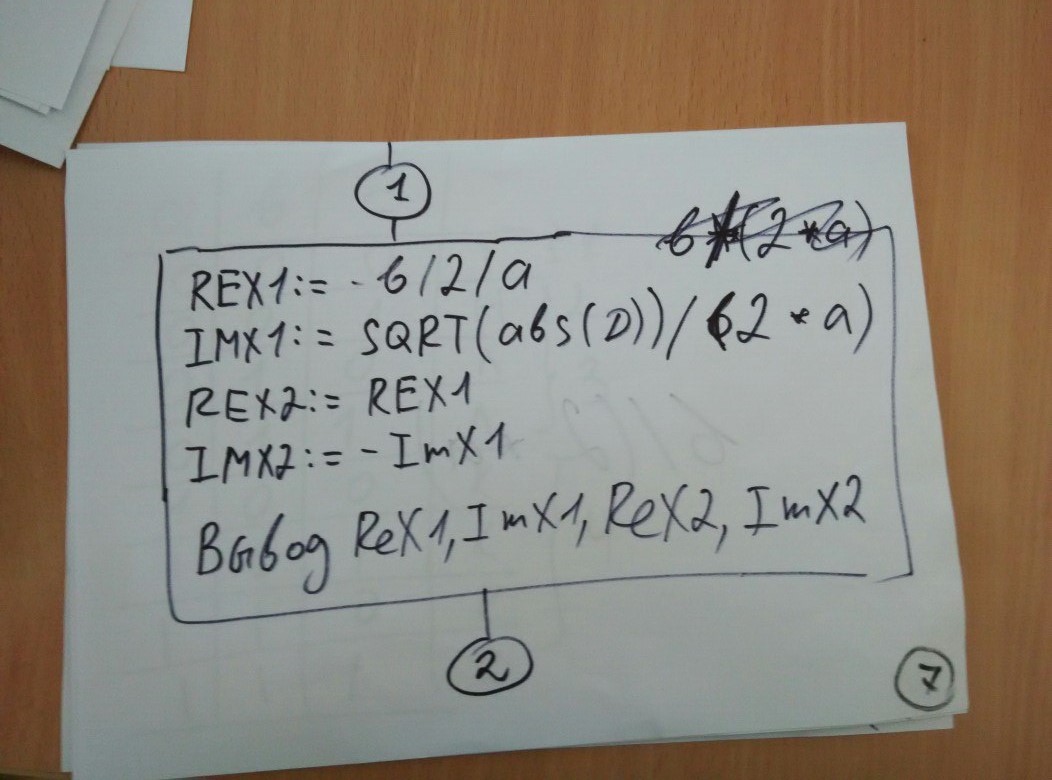 1
b*(2*a)
REX1:= -b/2/a
IMX1:= SQRT(abs(D))/(2*a)
REX2:= REX1
IMX2:= -ImX1
Вывод ReX1, ImX1, ReX2, ImX2
2
7